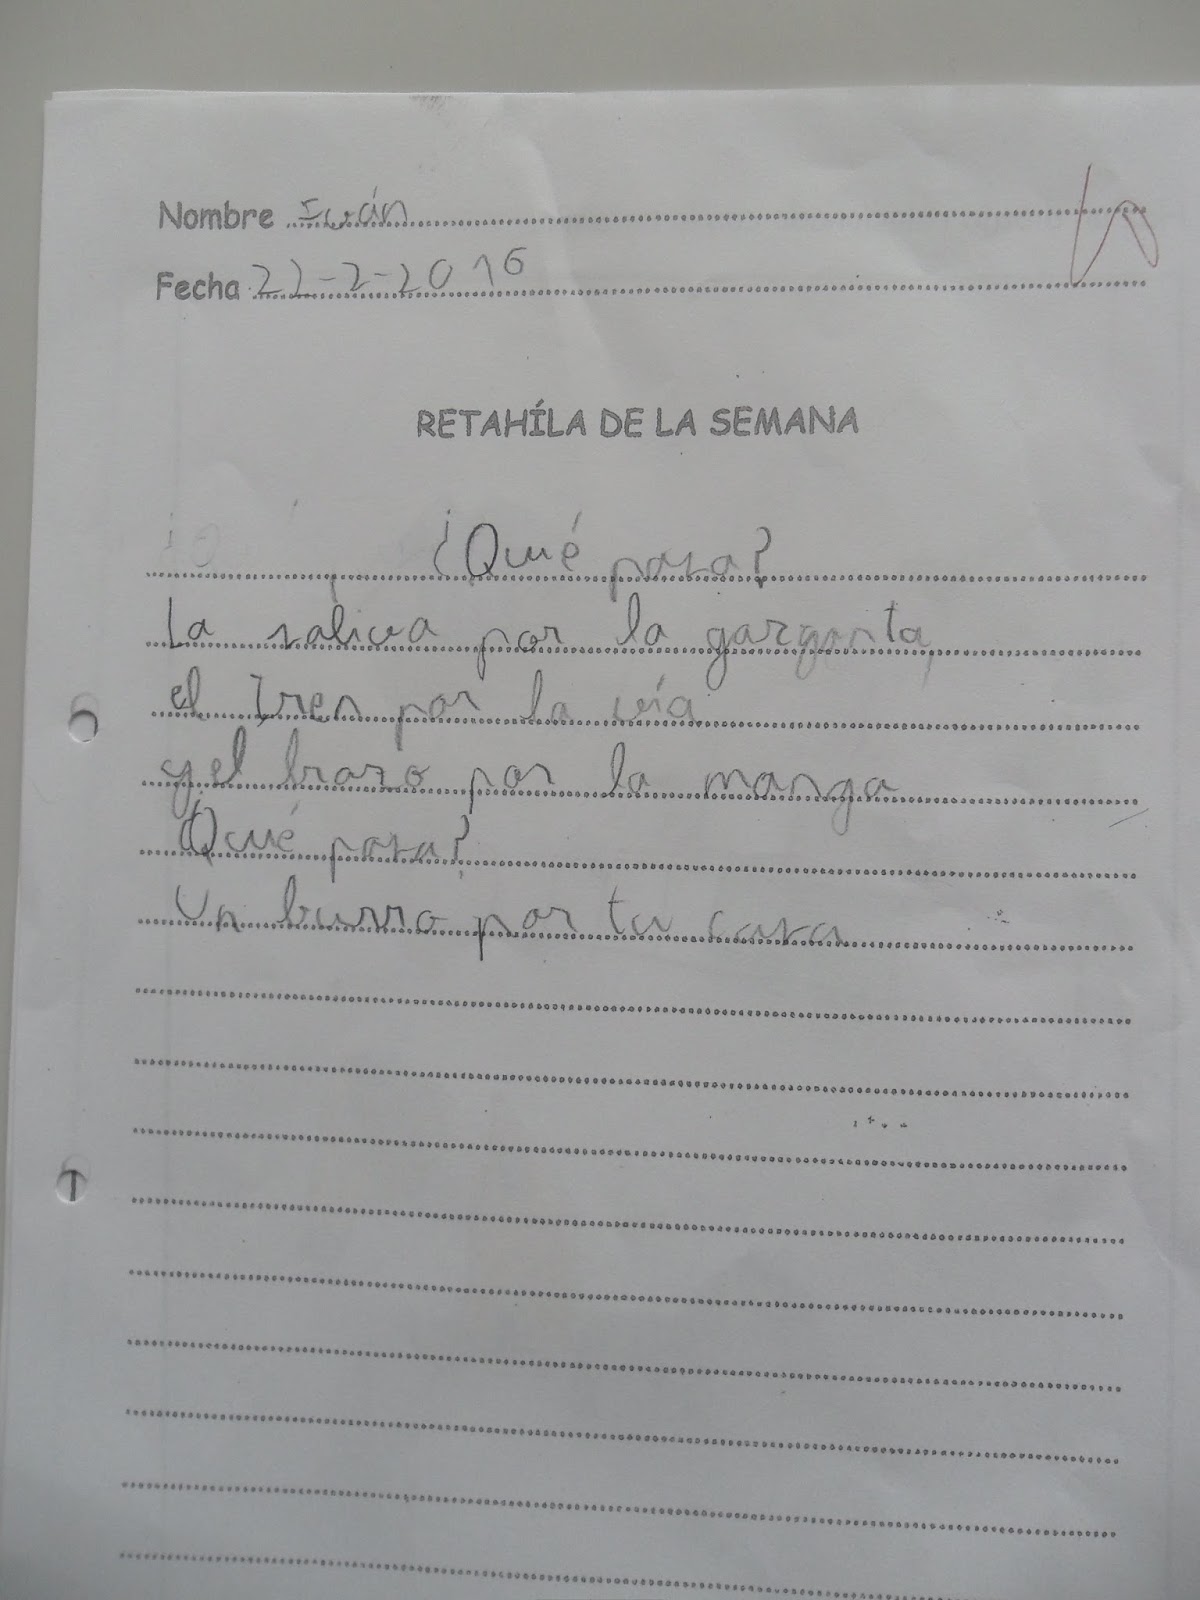 Nombre Iván
Fecha 22-2-2016
RETAHÍLA DE LA SEMANA
¿Qué pasa?
La saliva por la garganta,
el tren por la vía
y el brazo por la manga
Qué pasa?
Un burro por tu casa